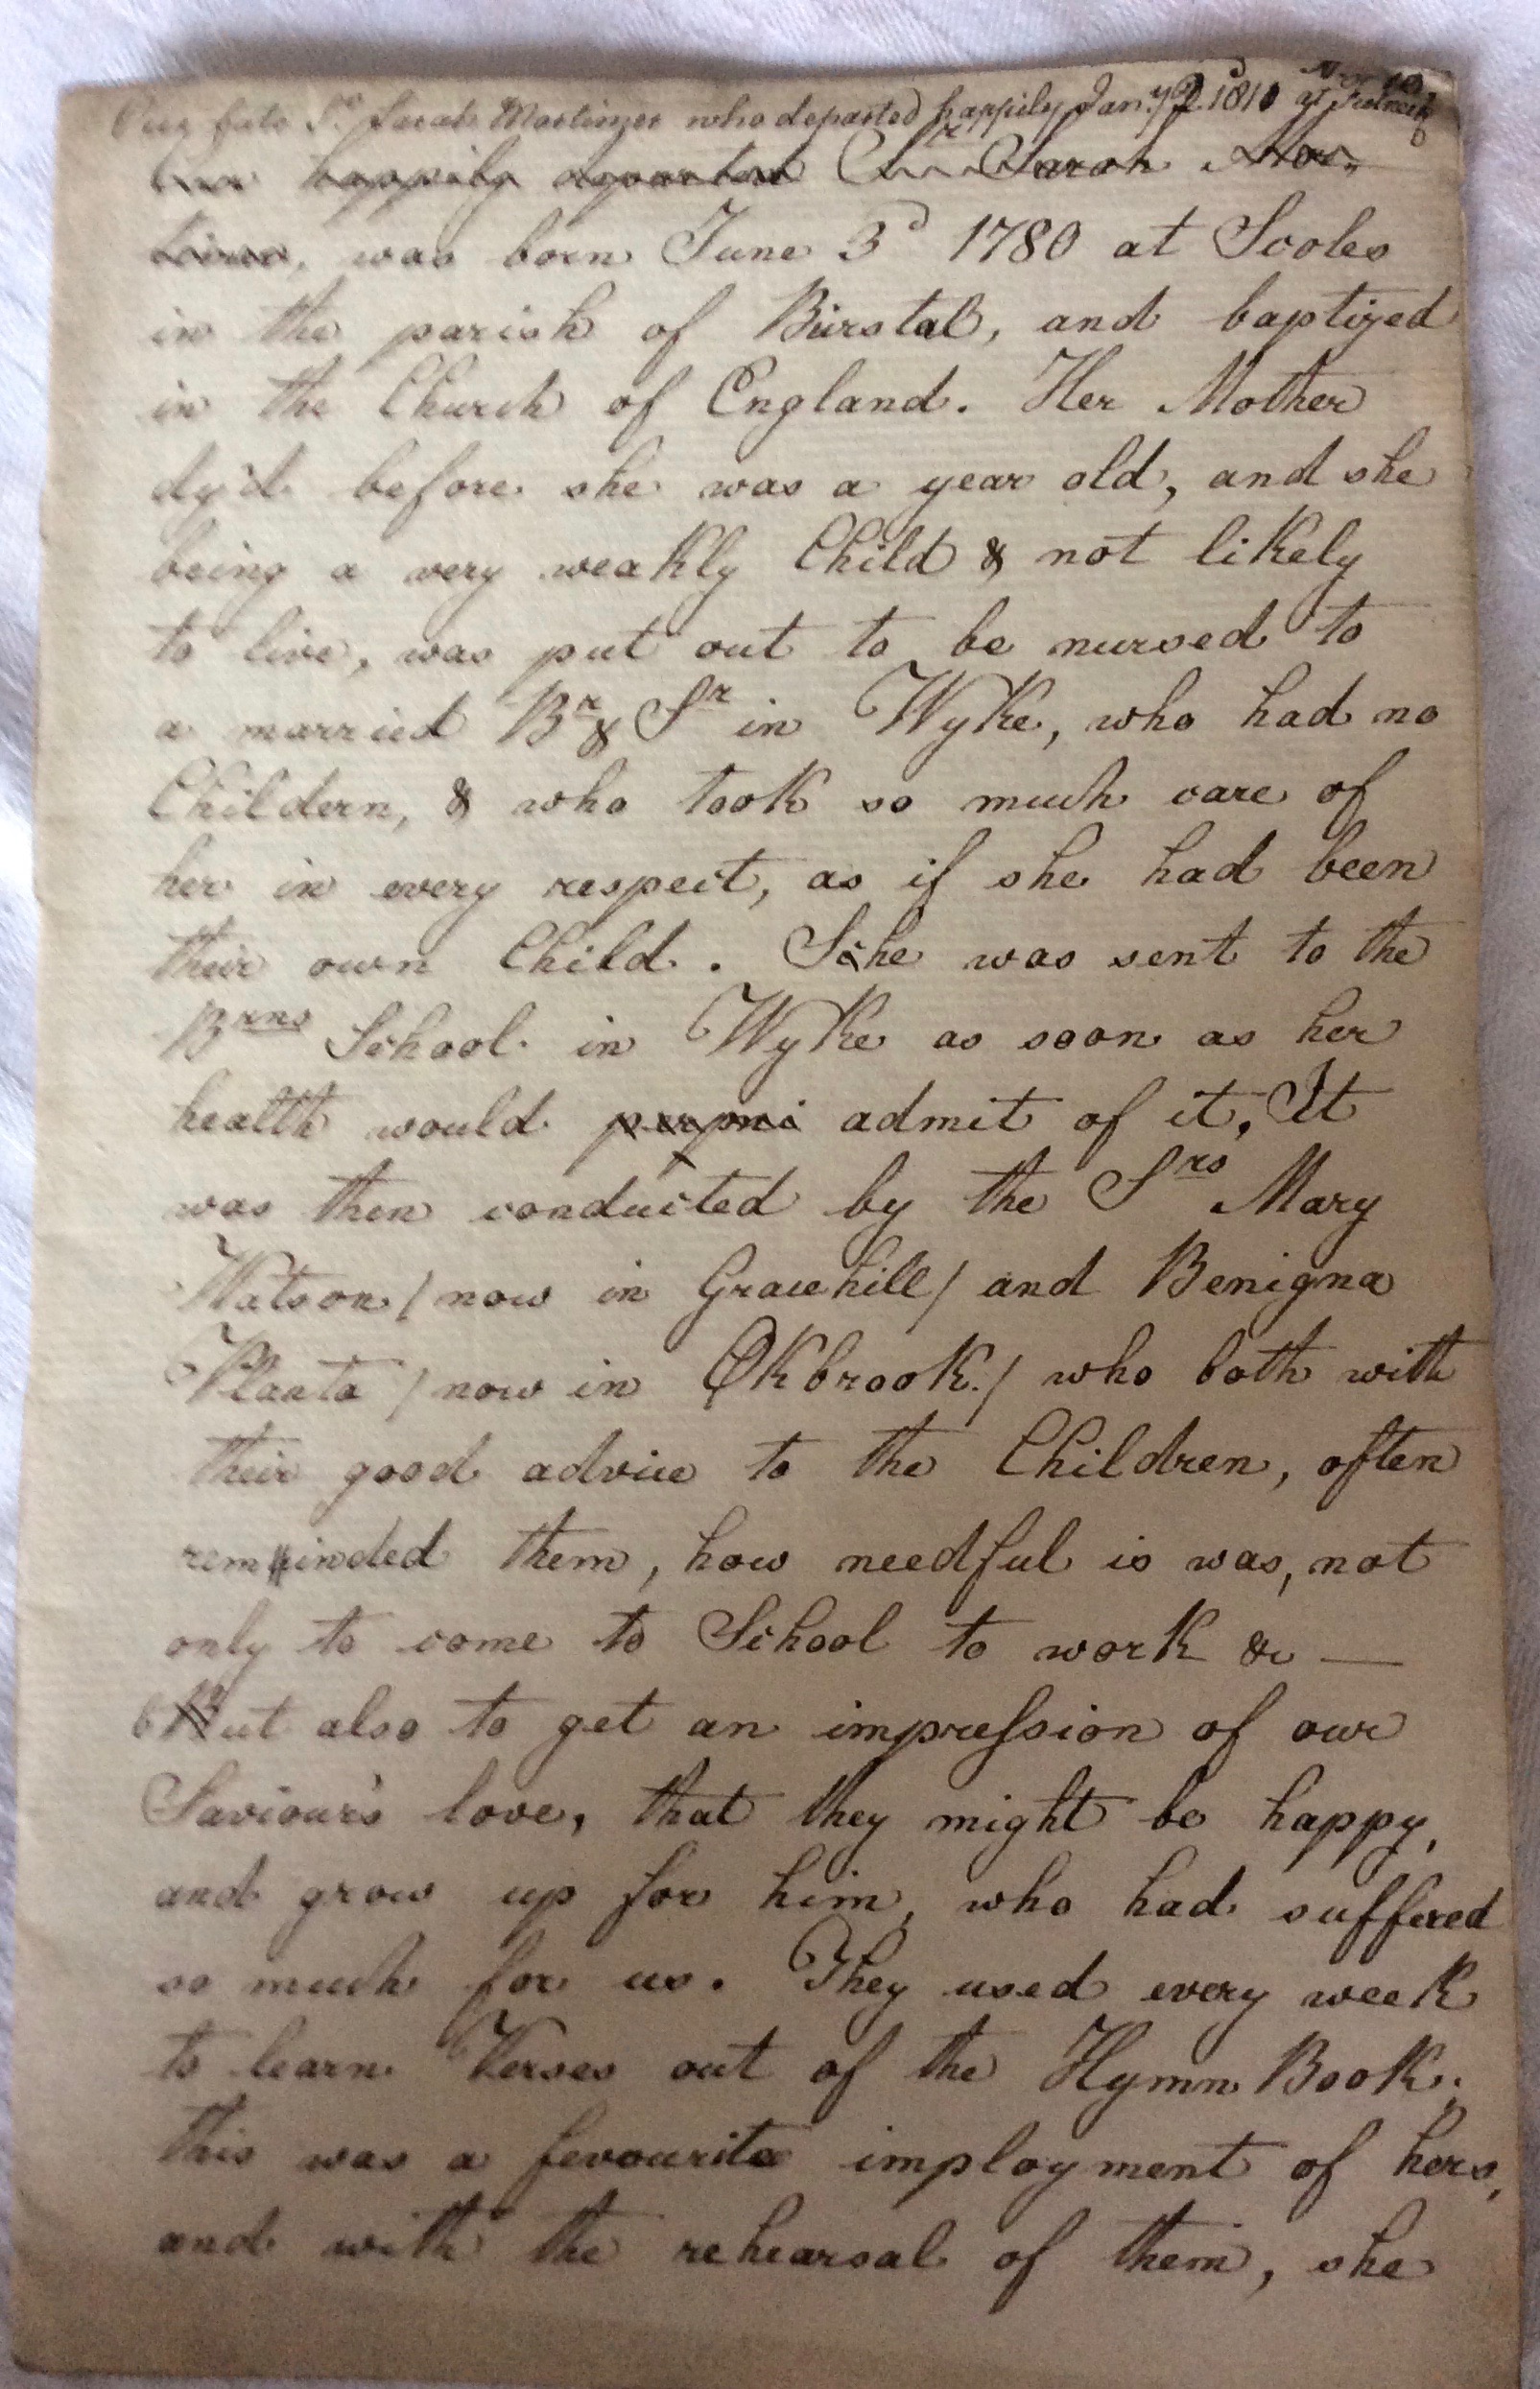 Our late Sr. Sarah Mortimer who departed happily Jany 2d 1810 at Fulneck
Our happily departed Sr Sarah Mor-
timer, was born June 3d 1780 at Scoles
in the parish of Birstal, and baptized
in the Church of England. Her Mother
dy'd before she was a year old, and she
being a very weakly Child & not likely
to live, was put out to be nursed to
a married Br & Sr in Wyke, who had no
Childern, & who took so much care of
her in every respect, as if she had been
their own Child. She was sent to the
Brns School in Wyke as soon as her
health would permi admit of it, It
was then conducted by the Srs Mary
Watson / now in Gracehill / and Benigna
Planta / now in Okbrook. / who both with
their good advice to the Children, often
reminded them, how needful is was, not
only to come to School to work &c —
but also to get an impression of our
Saviour's love, that they might be happy,
and grow up for him, who had suffered
so much for us. They used every week
to learn Verses out of the Hymn Book;
this was a fevourite imployment of hers,
and with the rehearsal of them, she